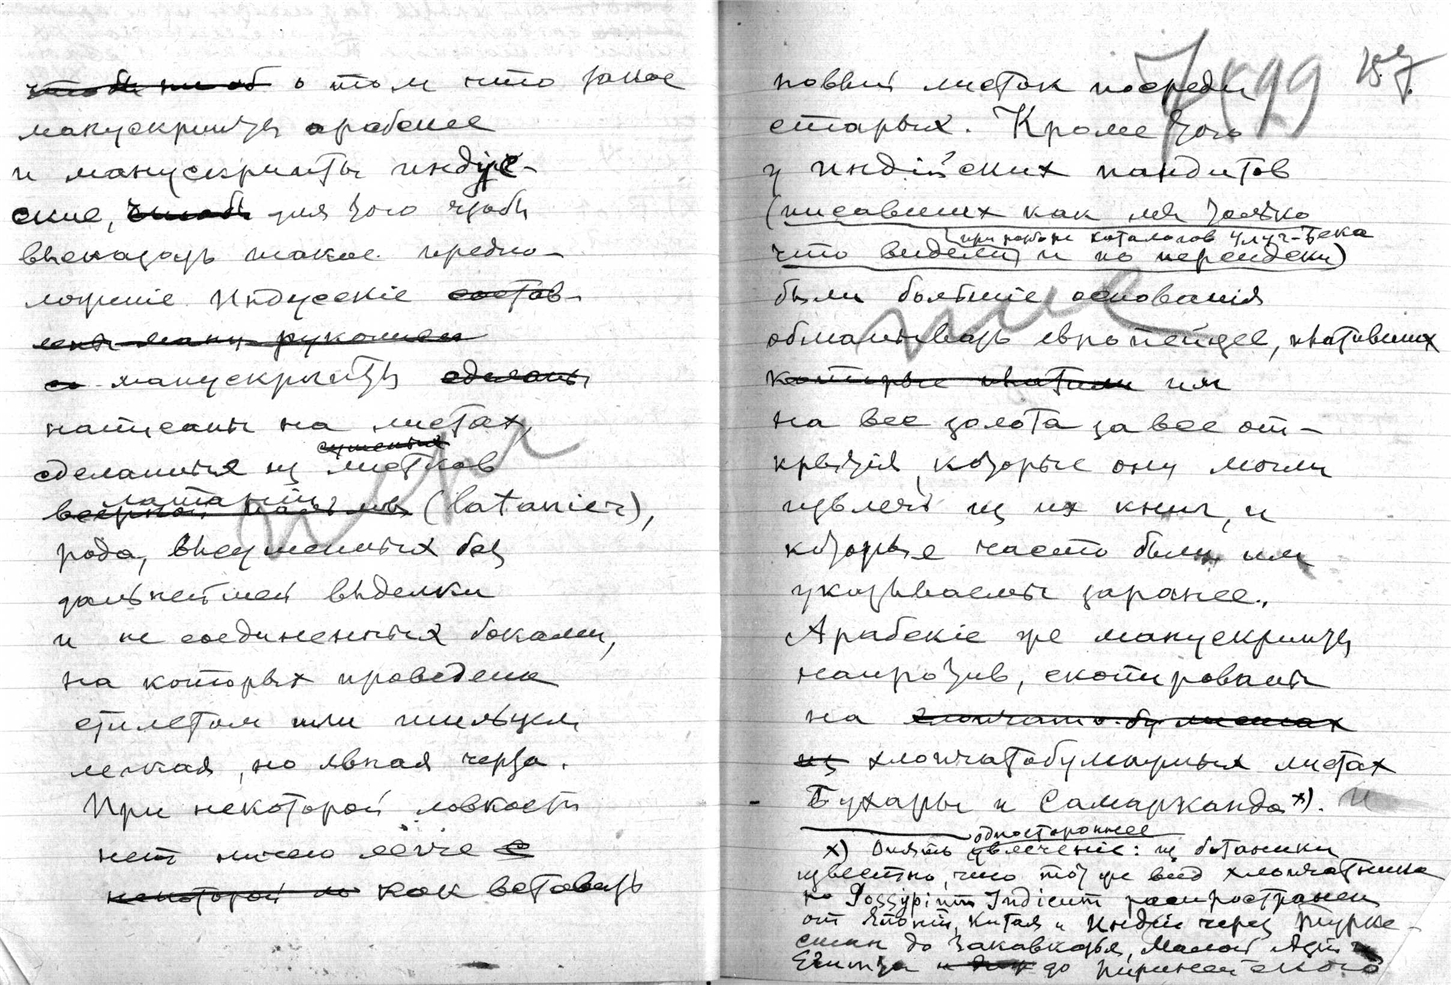 о том что такое
манускрипты арабские
и манускрипты индус-
ские, для того чтобы
высказать такое предпо-
ложение. Индусскіе состав-
манускрипты сделаны
написаны на листах,
сделанных из листков
латаній (latanier),
рода, высушенных без
дальнейшей выделки
и не соединенных боками,
на которых проведена
стилетом или шильцем
легкая, но явная черта.
При некоторой ловкости
нет ничего легче
некоторой ло как вставать
новый листок посреди
старых. Кроме того
у индійских пандитов
(писавших как мы только
при подборе каталогов Улуг-Бека
что видели и по переписки)
были большіе основанія
обманывать европейцев, плативших
которые платили им
на вес золота за все от-
крытія, которые они могли
извлечь из их книг, и
которые часто были им
указываемы заранее.
Арабскіе же манускрипты
напротив, скопированы
на
из хлопчатобумажных листах
Бухары и Самарканда х). И
одностороннее
х) Опять увлеченіе: из ботаники
известно, что тот же вид хлопчатника
Gossypium Indicum распространен
от Японіи, Китая и Индіи через Турке-
стан до Закавказья, Малой Азіи
Египта и до Пиринейского